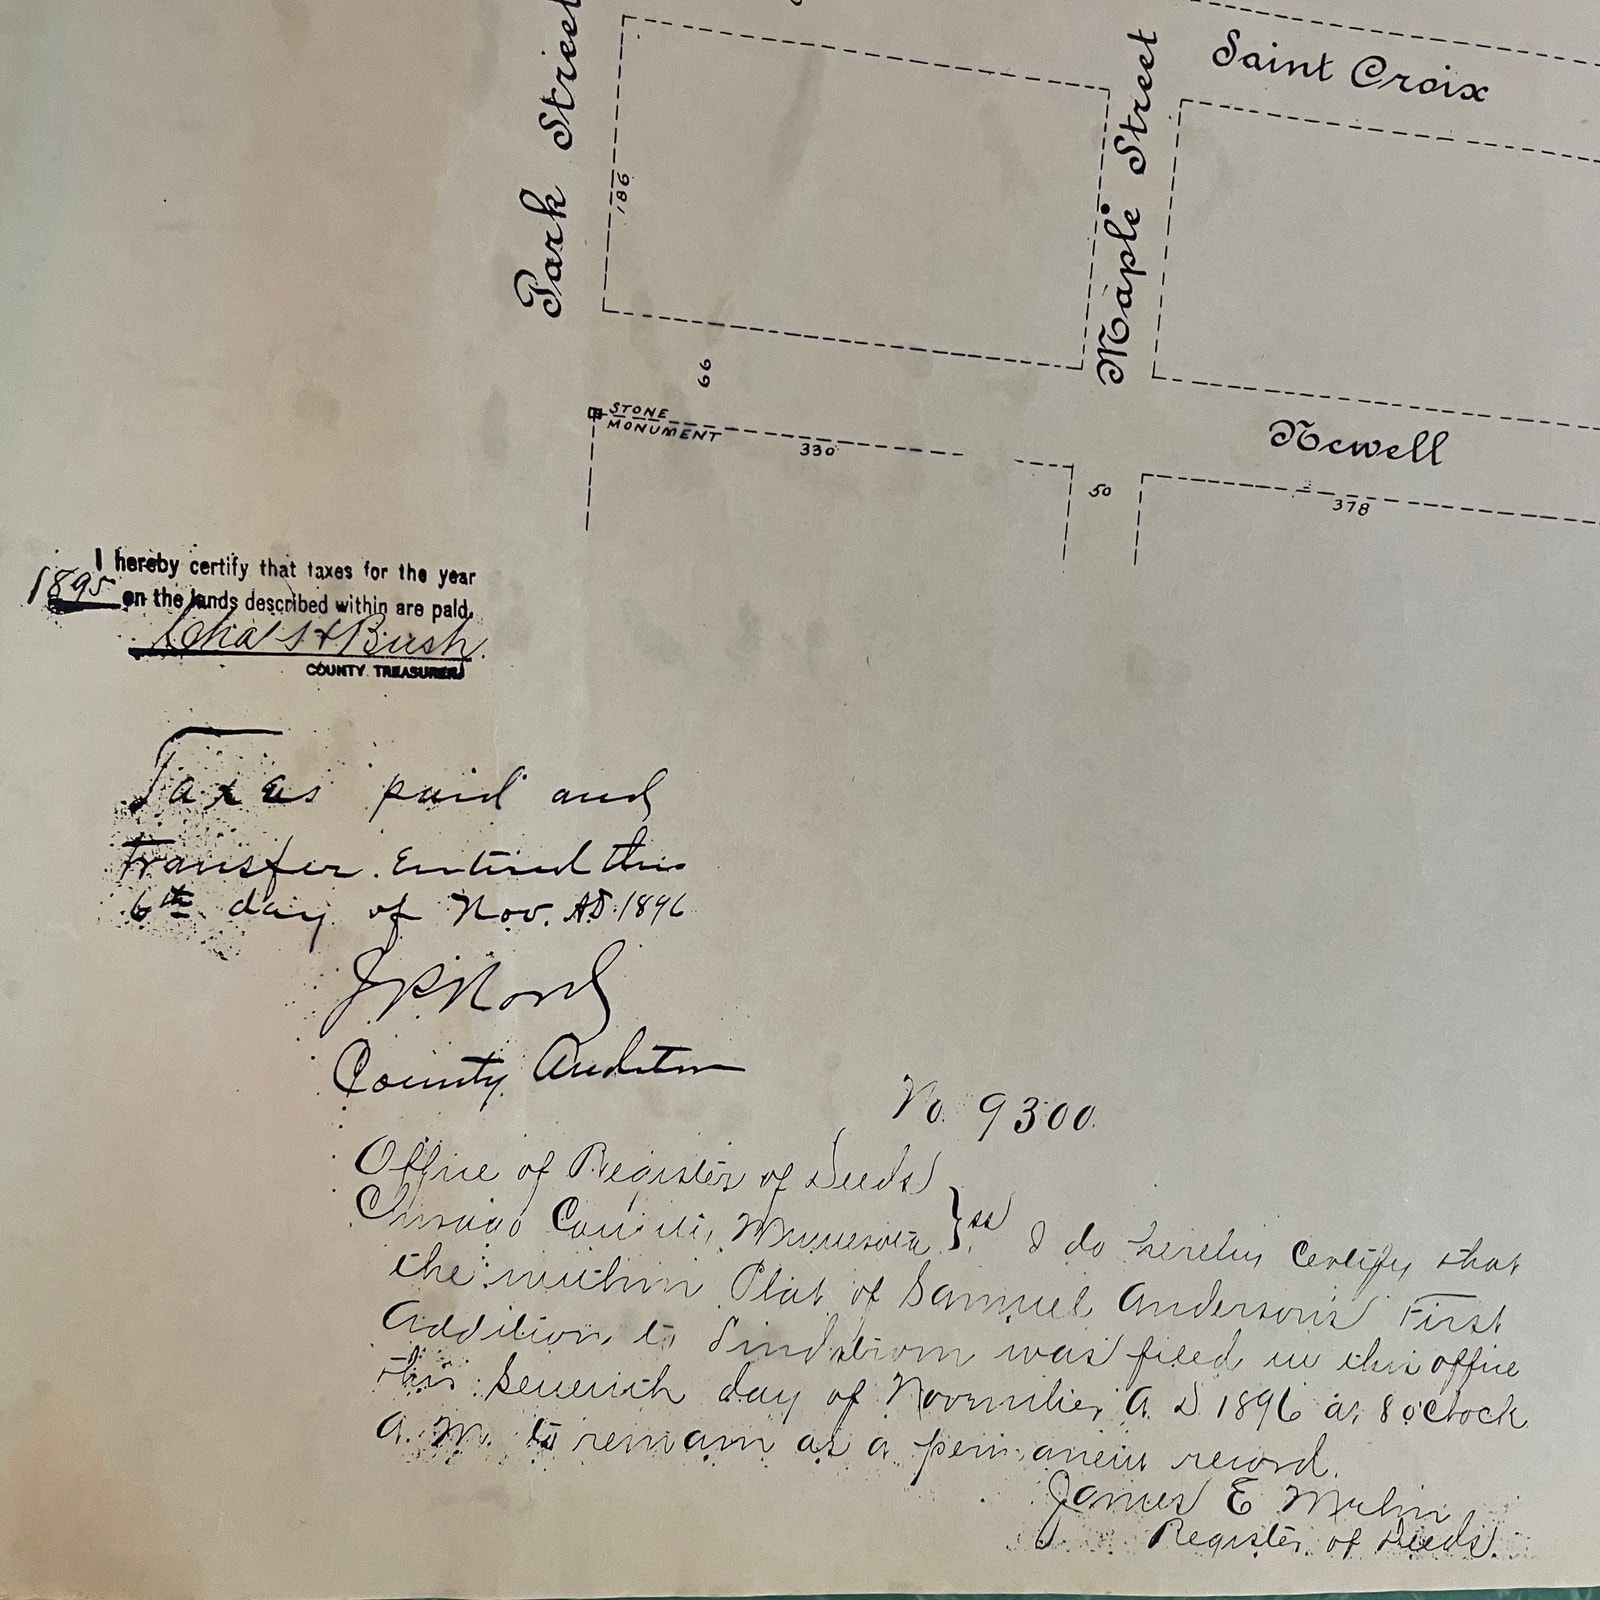 Park Street
186
Maple Street
Saint Croix
66
STONE
MONUMENT
330
50
Newell
378
I hereby certify that taxes for the year
1895 on the lands described within are paid.
Bush
COUNTY TREASURER
Taxes paid and
transfer Entered this
6th day of Nov. A.D. 1896
J. P. Nord
County Auditor
No. 9300.
Office of Register of Deeds
Chisago County, Minnesota } ss I do hereby Certify that
the within Plat of Samuel Anderson's First
Addition to Lindstrom was filed in this office
this Seventh day of November A. D 1896 at 8 o'Clock
A. M. to remain as a permanent record.
James E
Register of Deeds.